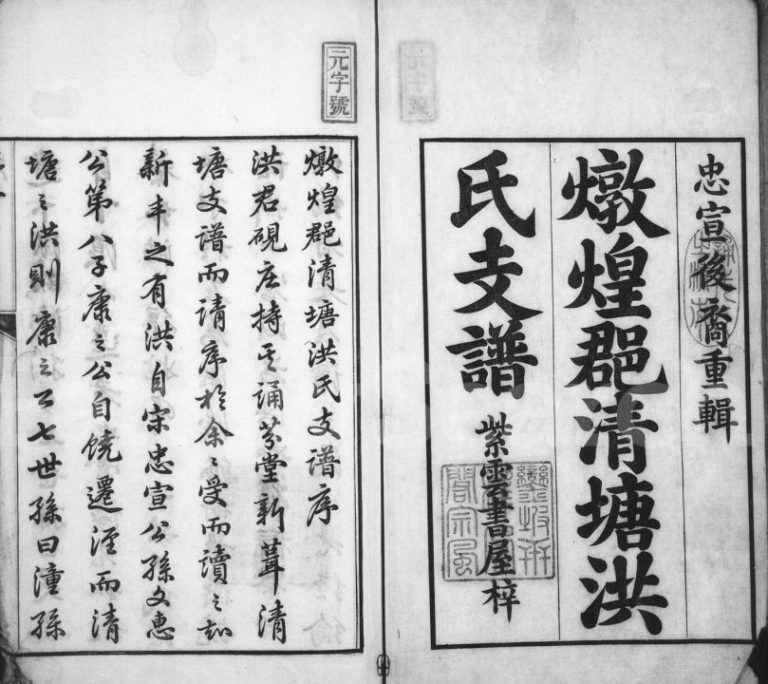 忠宣後裔重輯
燉煌郡清塘洪
氏支譜
紫雲書屋梓
元字號
燉煌郡清塘洪氏支譜序
洪君硯庄持其誦芬堂新葺清
塘支譜而請序於余〻受而讀之知
新丰之有洪自宋忠宣公孫文惠
公第八子康之公自饒遷涇而清
塘之洪則康之公七世孫曰潼孫